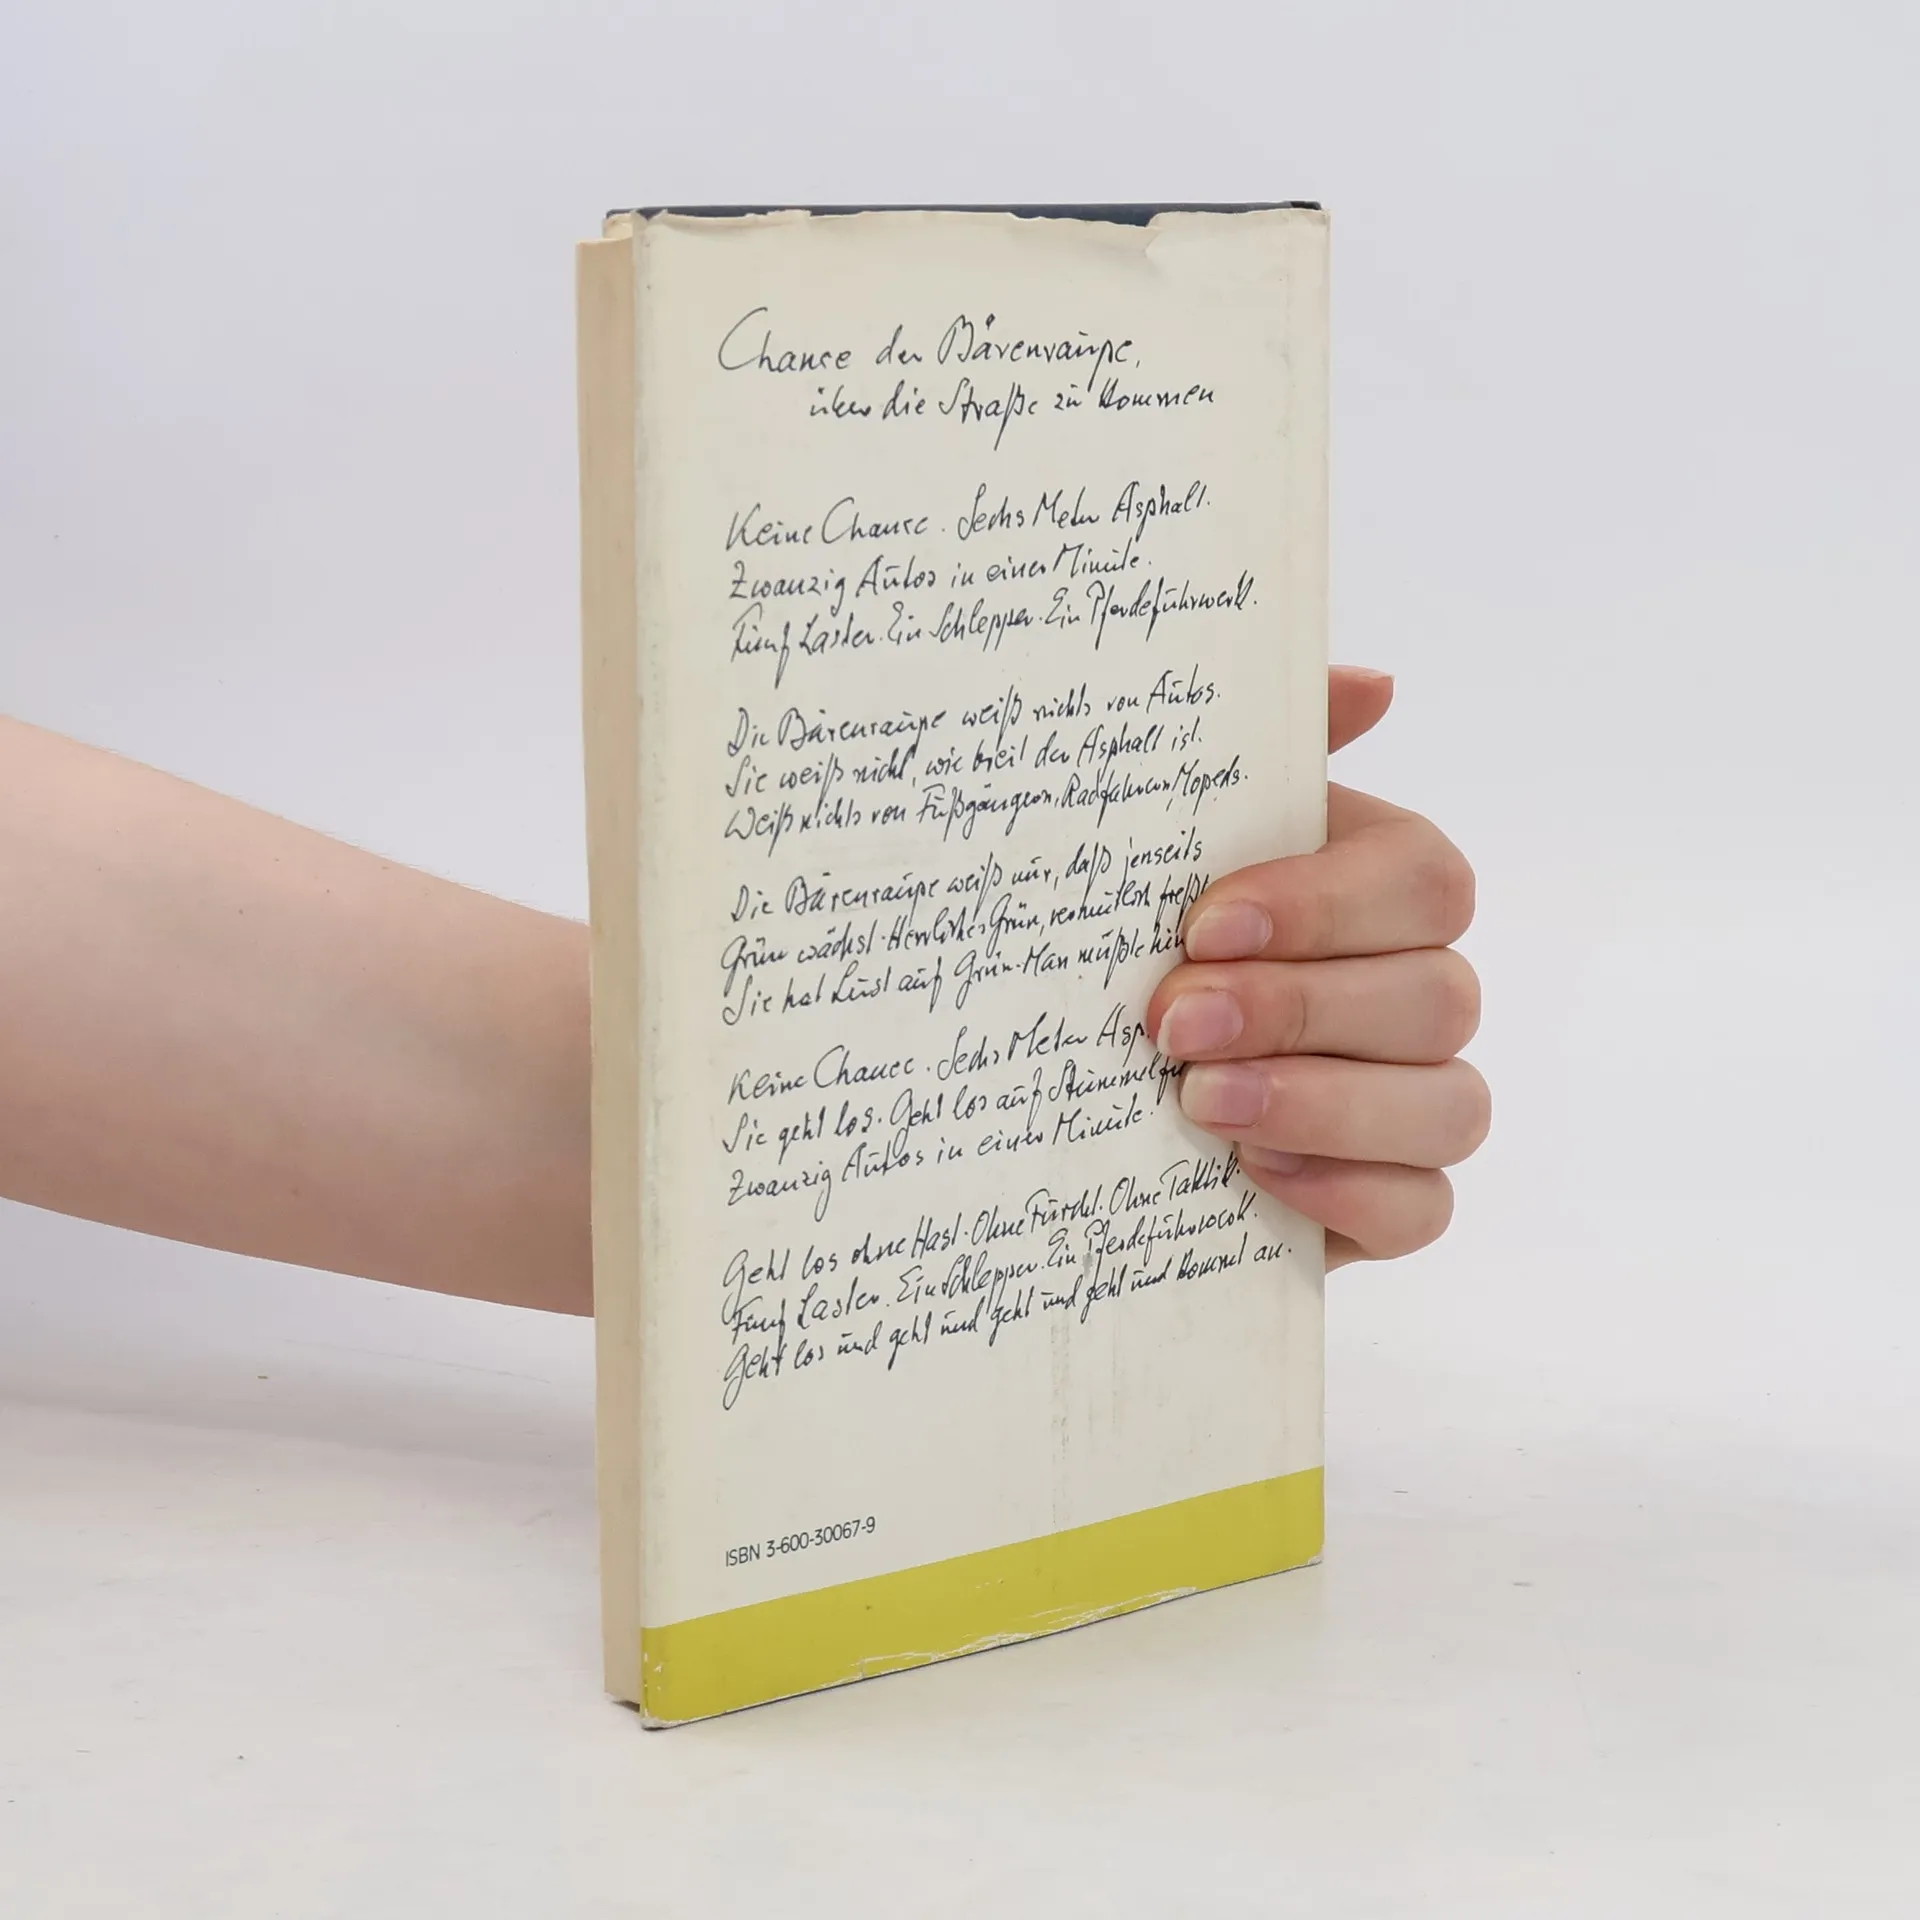 Chance der Bärenraupe,
über die Straße zu kommen
Keine Chance. Sechs Meter Asphalt.
Zwanzig Autos in einer Minute.
Fünf Laster. Ein Schlepper. Ein Pferdefuhrwerk.
Die Bärenraupe weiß nichts von Autos.
Sie weiß nicht, wie breit der Asphalt ist.
Weiß nichts von Fußgängern, Radfahrern, Mopeds.
Die Bärenraupe weiß nur, daß jenseits
Grün wächst. Herrliches Grün, vermutlich freßb
Sie hat Lust auf Grün. Man müßte hin
Keine Chance. Sechs Meter Asp
Sie geht los. Geht los auf Stummelfü
Zwanzig Autos in einer Minute.
Geht los ohne Hast. Ohne Furcht. Ohne Taktik.
Fünf Laster. Ein Schlepper. Ein Pferdefuhrwerk.
Geht los und geht und geht und geht und kommt an.
ISBN 3-600-30067-9